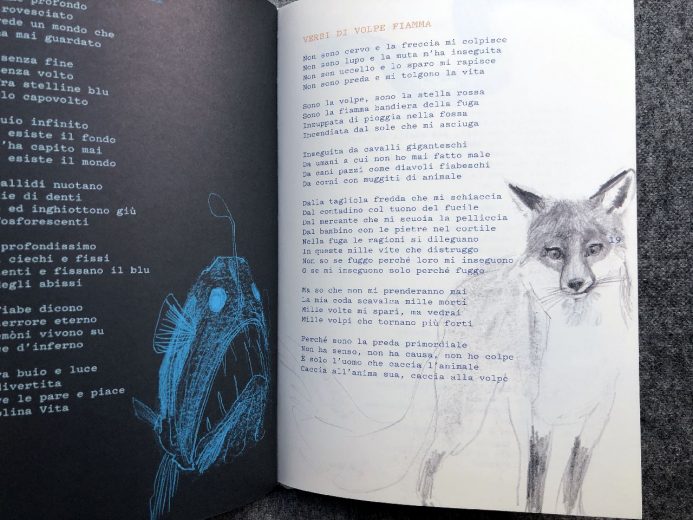 o profondo
rovesciato
rede un mondo che
a mai guardato
senza fine
senza volto
ra stelline blu
lo capovolto
uio infinito
esiste il fondo
'ha capito mai
esiste il mondo
allidi nuotano
ie di denti
ed inghiottono giù
osforescenti
profondissimo
ciechi e fissi
enti e fissano il blu
egli abissi
iabe dicono
errore eterno
emòni vivono su
e d'inferno
ra buio e luce
divertita
ve le pare e piace
olina Vita
VERSI DI VOLPE FIAMMA
Non sono cervo e la freccia mi colpisce
Non sono lupo e la muta m'ha inseguita
Non son uccello e lo sparo mi rapisce
Non sono preda e mi tolgono la vita
Sono la volpe, sono la stella rossa
Sono la fiamma bandiera della fuga
Inzuppata di pioggia nella fossa
Incendiata dal sole che mi asciuga
Inseguita da cavalli giganteschi
Da umani a cui non ho mai fatto male
Da cani pazzi come diavoli fiabeschi
Da corni con muggiti di animale
Dalla tagliola fredda che mi schiaccia
Dal contadino col tuono del fucile
Dal mercante che mi scuoia la pelliccia
Dal bambino con le pietre nel cortile
Nella fuga le ragioni si dileguano
In queste mille vite che distruggo
Non so se fuggo perché loro mi inseguono
O se mi inseguono solo perché fuggo
Ma so che non mi prenderanno mai
La mia coda scavalca mille morti
Mille volte mi spari, ma vedrai
Mille volpi che tornano più forti
Perché sono la preda primordiale
Non ha senso, non ha causa, non ho colpe
È solo l'uomo che caccia l'animale
Caccia all'anima sua, caccia alla volpe
19